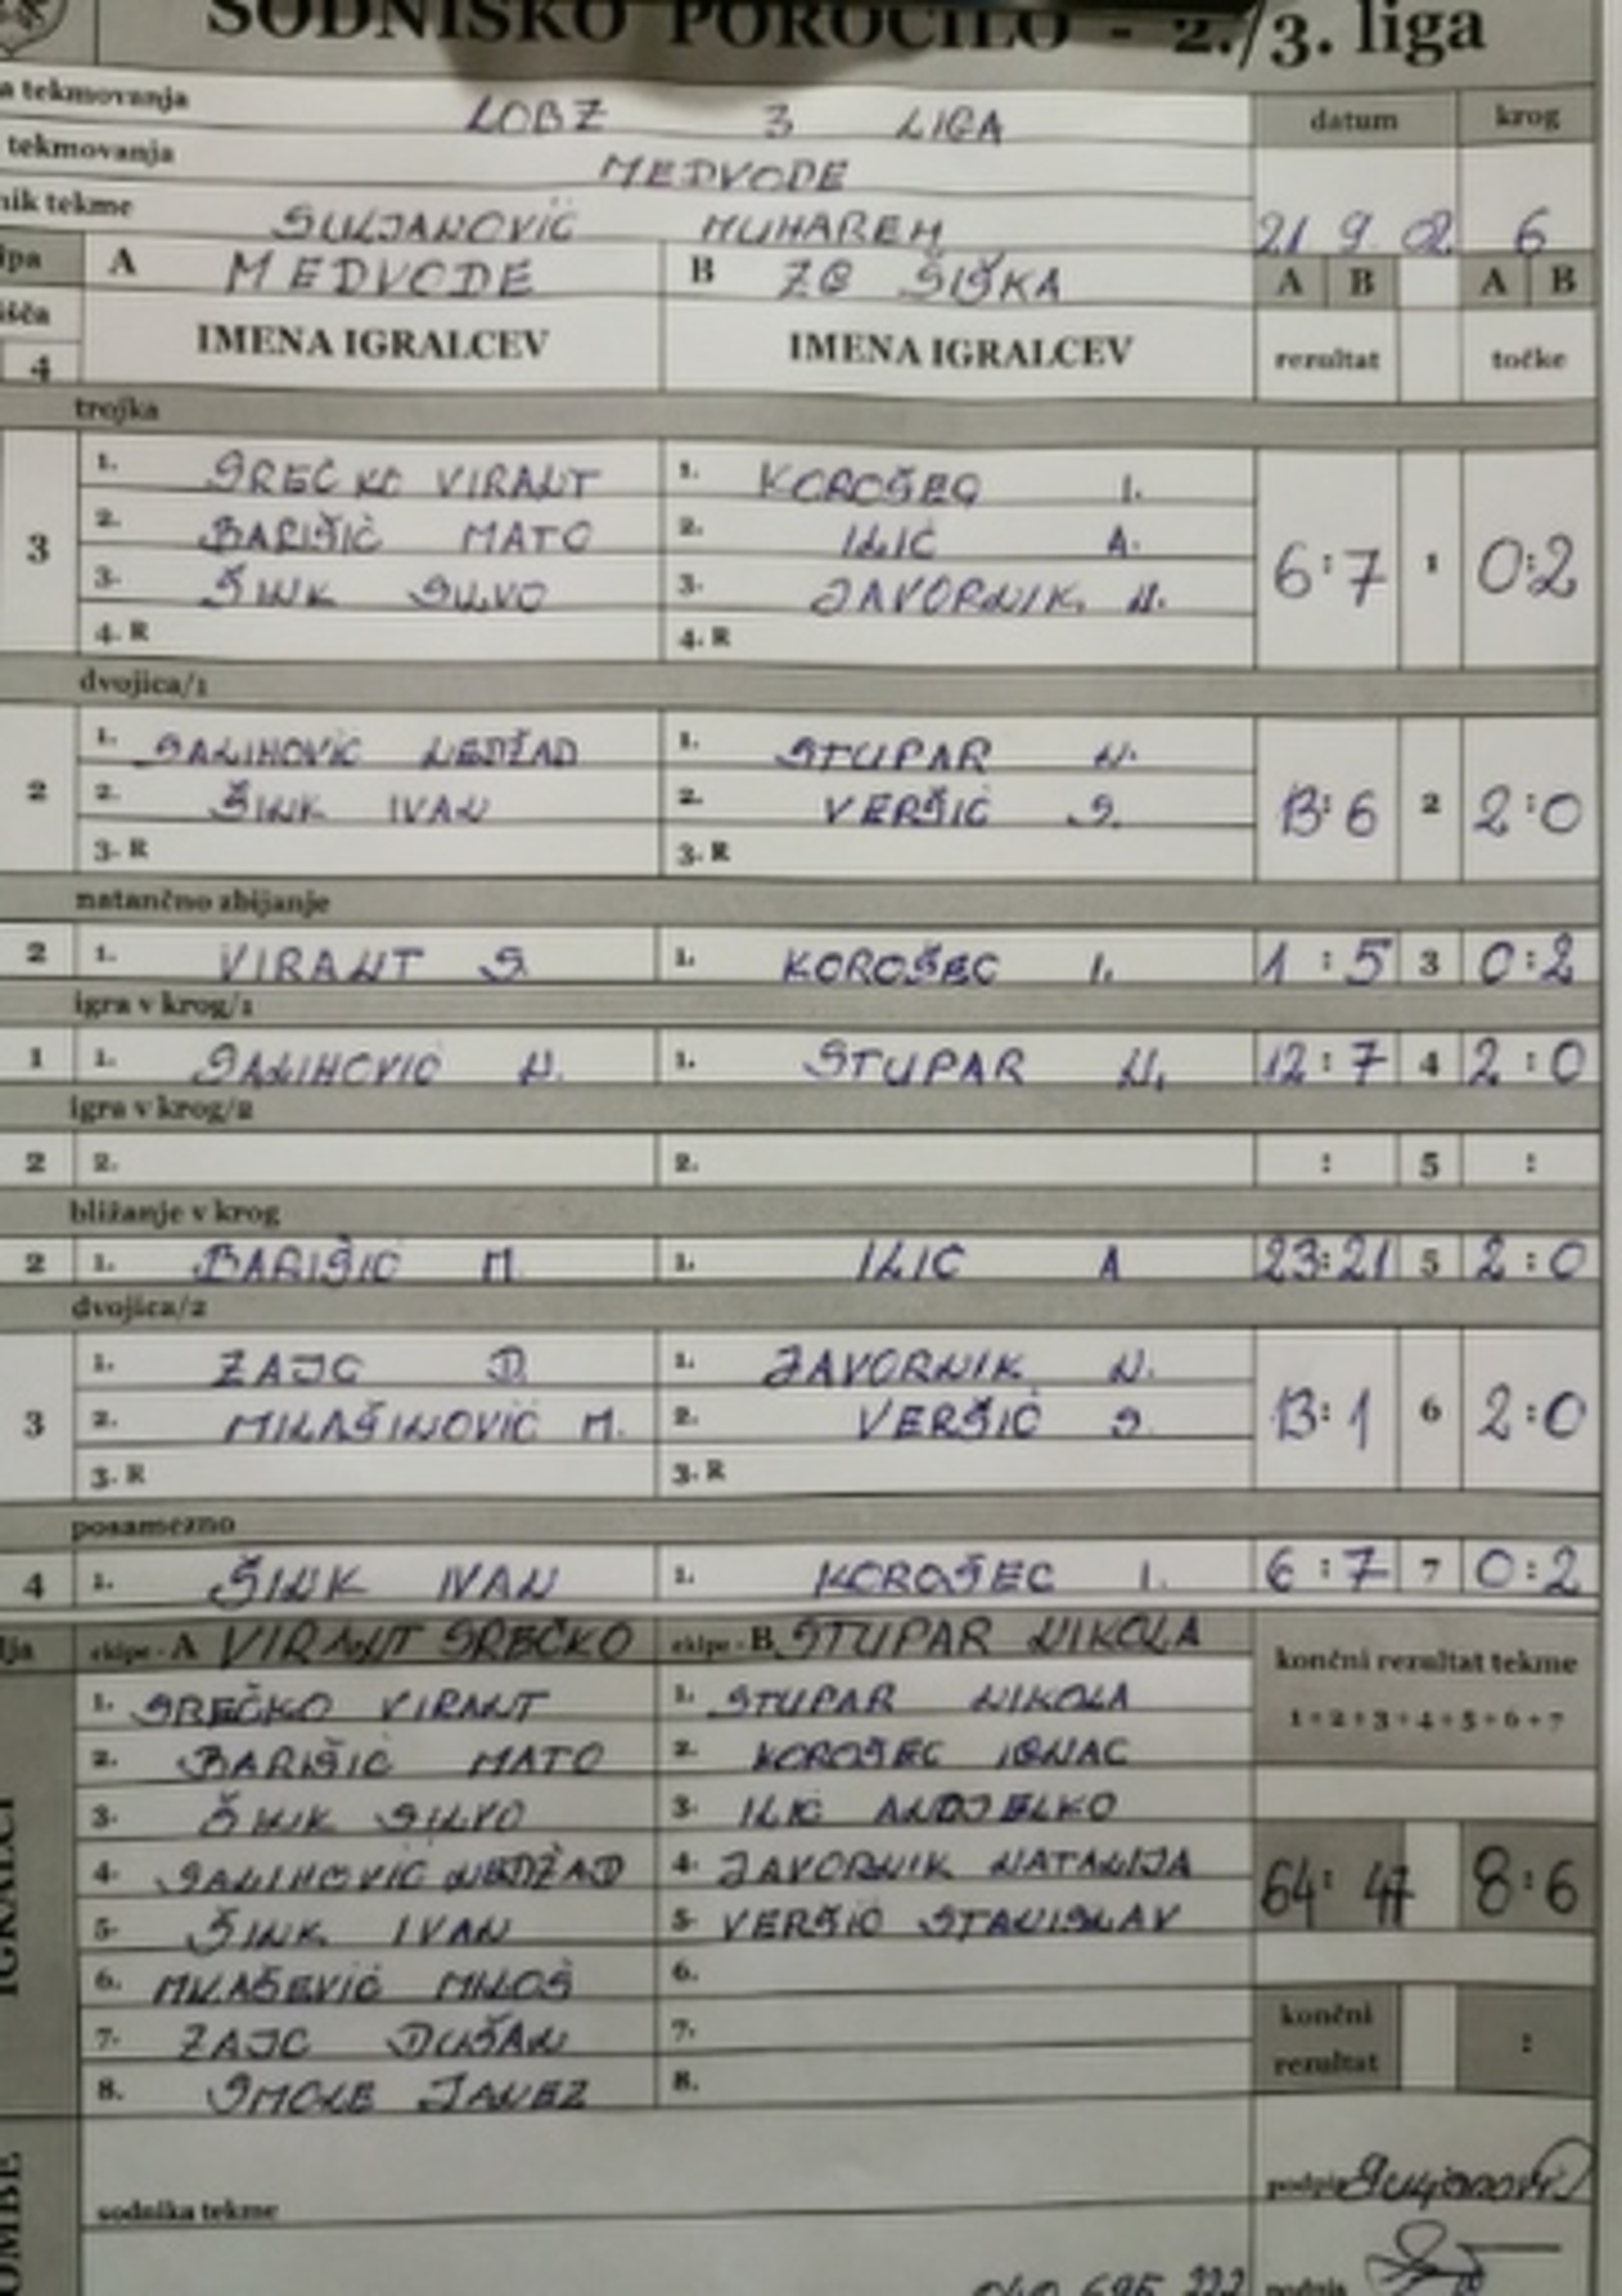 SODNIŠKO POROČILO - 2./3. liga
a tekmovanja LOBZ 3 LIGA datum krog
tekmovanja MEDVODE
nik tekme SULJANOVIĆ MUHAREM 21 9 02 6
ipa A MEDVODE B ZB ŠIŠKA A B A B
išča IMENA IGRALCEV IMENA IGRALCEV rezultat točke
4
trojka
1. SREČKO VIRANT 1. KOROŠEC I.
2. BARIŠIĆ MATO 2. ILIĆ A.
3 3. ŠINK SILVO 3. JAVORNIK. N. 6:7 1 0:2
4. R 4. R
dvojica/1
1. SALIHOVIĆ NEDŽAD 1. STUPAR N.
2 2. ŠINK IVAN 2. VERŠIČ S. 13:6 2 2:0
3. R 3. R
natančno zbijanje
2 1. VIRANT S 1. KOROŠEC I. 1:5 3 0:2
igra v krog/1
1 1. SALIHOVIĆ N. 1. STUPAR N. 12:7 4 2:0
igra v krog/2
2 2. 2. : 5 :
bližanje v krog
2 1. BARIŠIĆ M. 1. ILIĆ A 23:21 5 2:0
dvojica/2
1. ZAJC D. 1. JAVORNIK N.
3 2. MILAŠINOVIĆ M. 2. VERŠIČ S. 13:1 6 2:0
3. R 3. R
posamezno
4 1. ŠINK IVAN 1. KOROŠEC I. 6:7 7 0:2
lja ekipe - A VIRANT SREČKO ekipe - B STUPAR NIKOLA končni rezultat tekme
1. SREČKO VIRANT 1. STUPAR NIKOLA 1+2+3+4+5+6+7
2. BARIŠIĆ MATO 2. KOROŠEC IGNAC
3. ŠINK SILVO 3. ILIĆ ANDJELKO
4. SALIHOVIĆ NEDŽAD 4. JAVORNIK NATALIJA 64:47 8:6
5. ŠINK IVAN 5. VERŠIČ STANISLAV
6. MILAŠEVIĆ MILOŠ 6.
7. ZAJC DUŠAN 7. končni rezultat :
8. SMOLE JANEZ 8.
IGRALCI
sodnika tekme podpis Suljanović
040 695 222 podpis